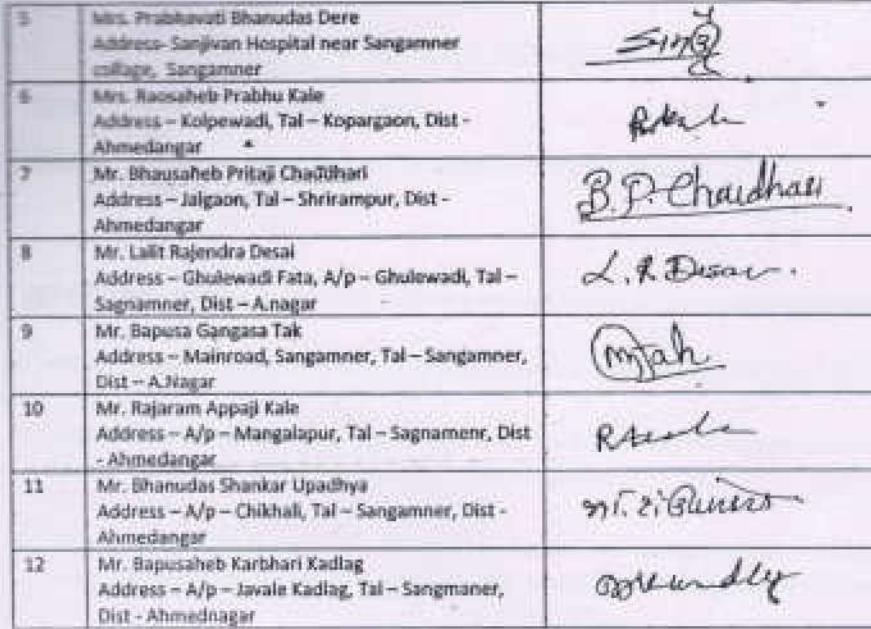 5 Mrs. Prabhavati Bhanudas Dere
Address- Sanjivan Hospital near Sangamner
collage, Sangamner
6 Mrs. Raosaheb Prabhu Kale
Address – Kolpewadi, Tal – Kopargaon, Dist -
Ahmedangar
7 Mr. Bhausaheb Pritaji Chaudhari
Address – Jalgaon, Tal – Shrirampur, Dist -
Ahmedangar
B.P. Chaudhari
8 Mr. Lalit Rajendra Desai
Address – Ghulewadi Fata, A/p – Ghulewadi, Tal –
Sagnamner, Dist – A.nagar
L. R. Desai.
9 Mr. Bapusa Gangasa Tak
Address – Mainroad, Sangamner, Tal – Sangamner,
Dist – A.Nagar
10 Mr. Rajaram Appaji Kale
Address – A/p – Mangalapur, Tal – Sagnamenr, Dist
- Ahmedangar
11 Mr. Bhanudas Shankar Upadhya
Address – A/p – Chikhali, Tal – Sangamner, Dist -
Ahmedangar
12 Mr. Bapusaheb Karbhari Kadlag
Address – A/p – Javale Kadlag, Tal – Sangmaner,
Dist - Ahmednagar